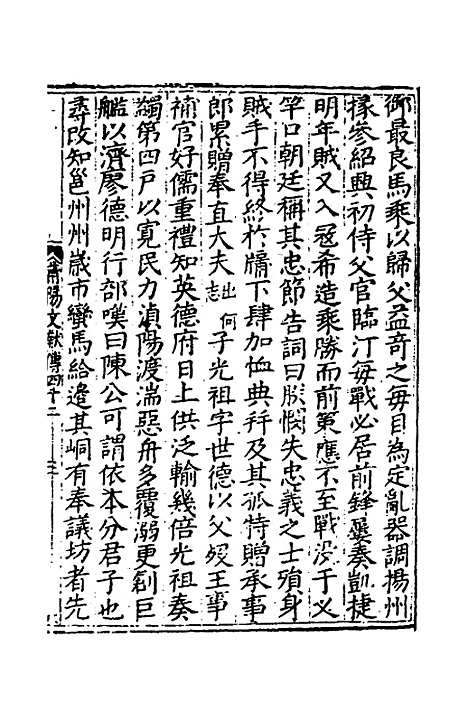 御最良馬乘以歸父益奇之每目為定亂器調揚州
掾參紹興初侍父官臨汀每戰必居前鋒屢奏凱捷
明年賊又入寇希造乘勝而前策應不至戰没于义
竿口朝廷稱其忠節告詞曰朕憫失忠義之士殞身
賊手不得終於牖下肆加恤典幷及其孤特贈承事
郎累贈奉直大夫出何志子光祖字世德以父殁王事
補官好儒重禮知英德府日上供泛輸幾倍光祖奏
蠲第四戸以寛民力湞陽渡湍惡舟多覆溺更創巨
艦以濟廖德明行部嘆曰陳公可謂依本分君子也
尋改知邕州州歲市蠻馬給邊其峒有奉議坊者先
莆陽文獻傳四十二 三